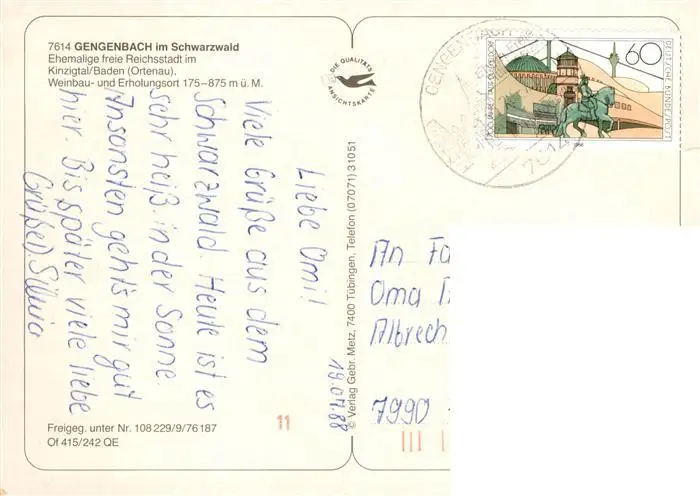 7614 GENGENBACH im Schwarzwald
Ehemalige freie Reichsstadt im
Kinzigtal/Baden (Ortenau),
Weinbau- und Erholungsort 175–875 m ü. M.
DIE QUALITÄTS
ANSICHTSKARTE
GENGENBACH
7614
60
DEUTSCHE BUNDESPOST
Liebe Omi!
Viele Grüße aus dem
Schwarzwald. Heute ist es
sehr heiß in der Sonne.
Ansonsten geht's mir gut
hier. Bis später viele liebe
Grüße
19.07.88
© Verlag Gebr. Metz, 7400 Tübingen, Telefon (07071) 31051
An Fa
Oma
Albrech
7990
Freigeg. unter Nr. 108 229/9/76 187
Of 415/242 QE
11